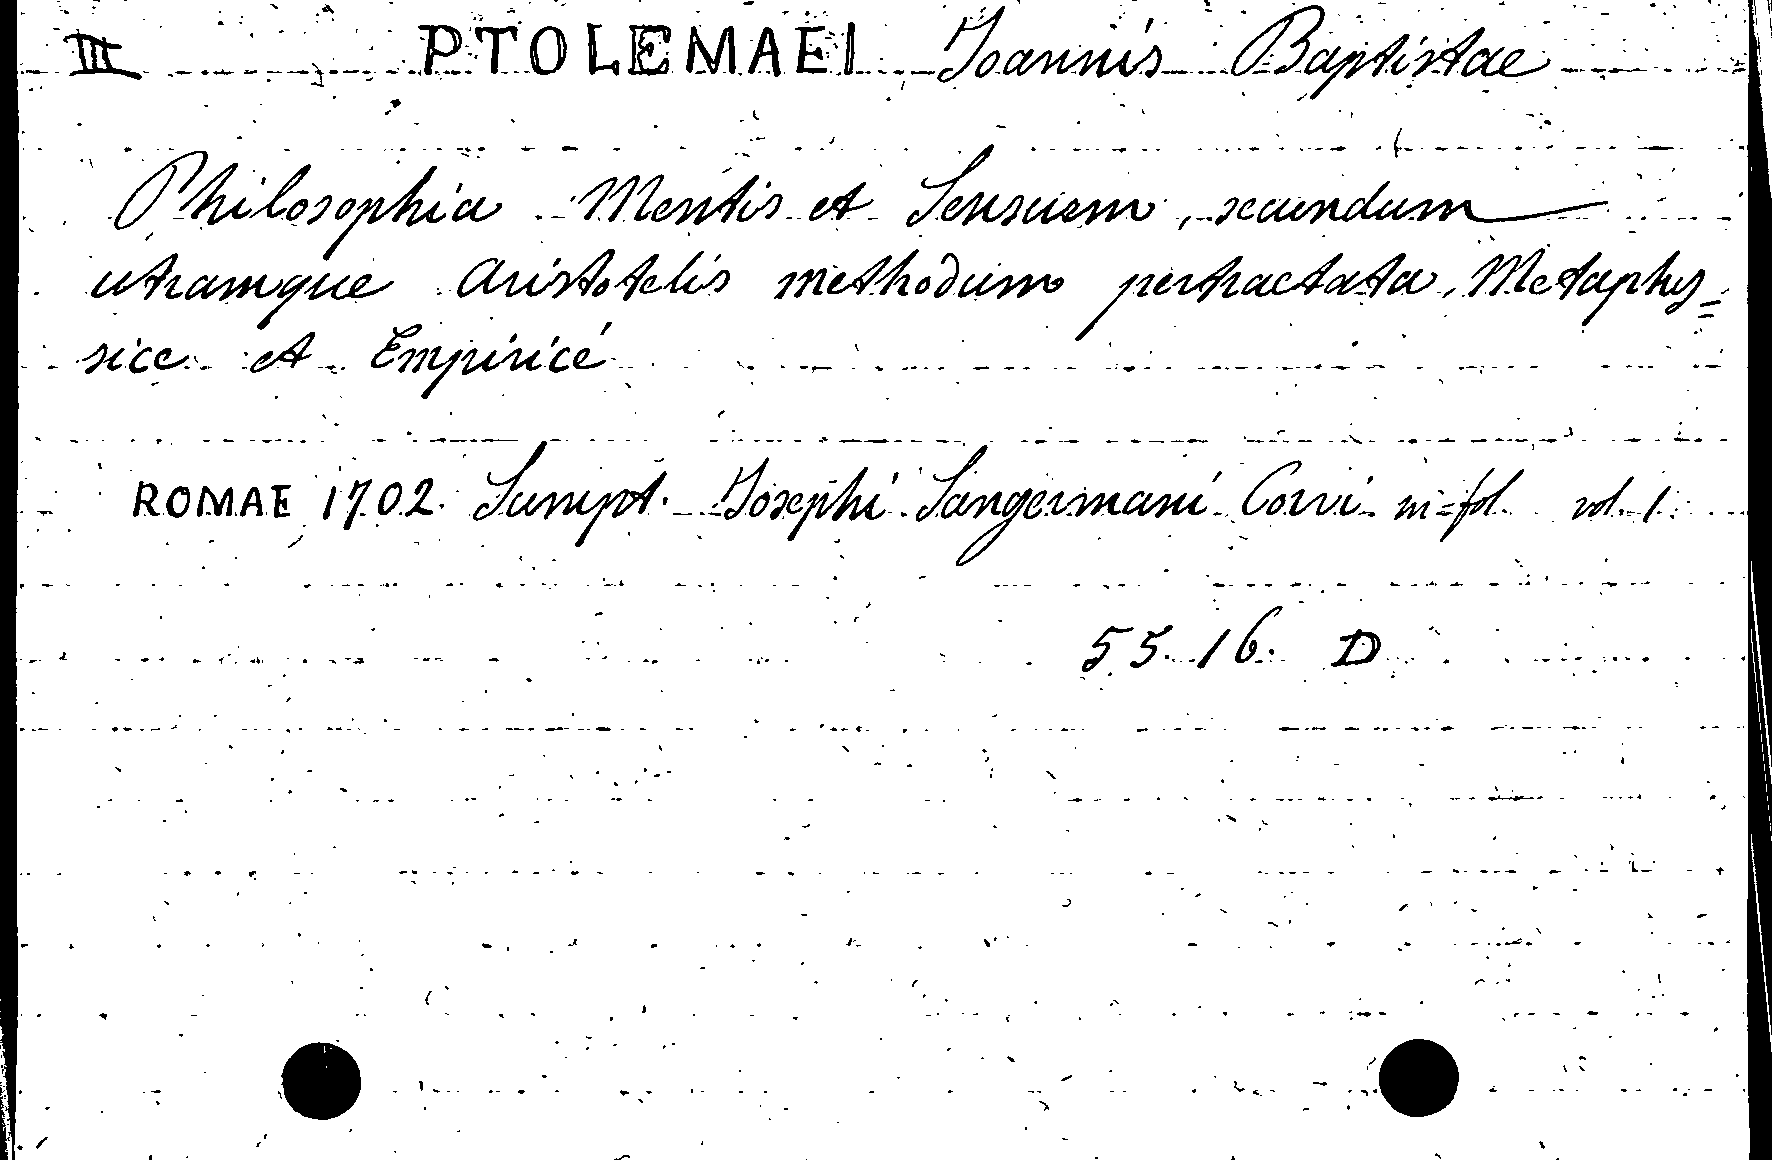 III PTOLEMAEI Joannis Baptistae
Philosophia Mentis et Sensuum, secundum
utramque Aristotelis methodum pertractata, Metaphy=
sice et Empiricé
ROMAE 1702. Sumpt. Josephi Sangermani Corvi in-fol. vol. 1
55. 16. D